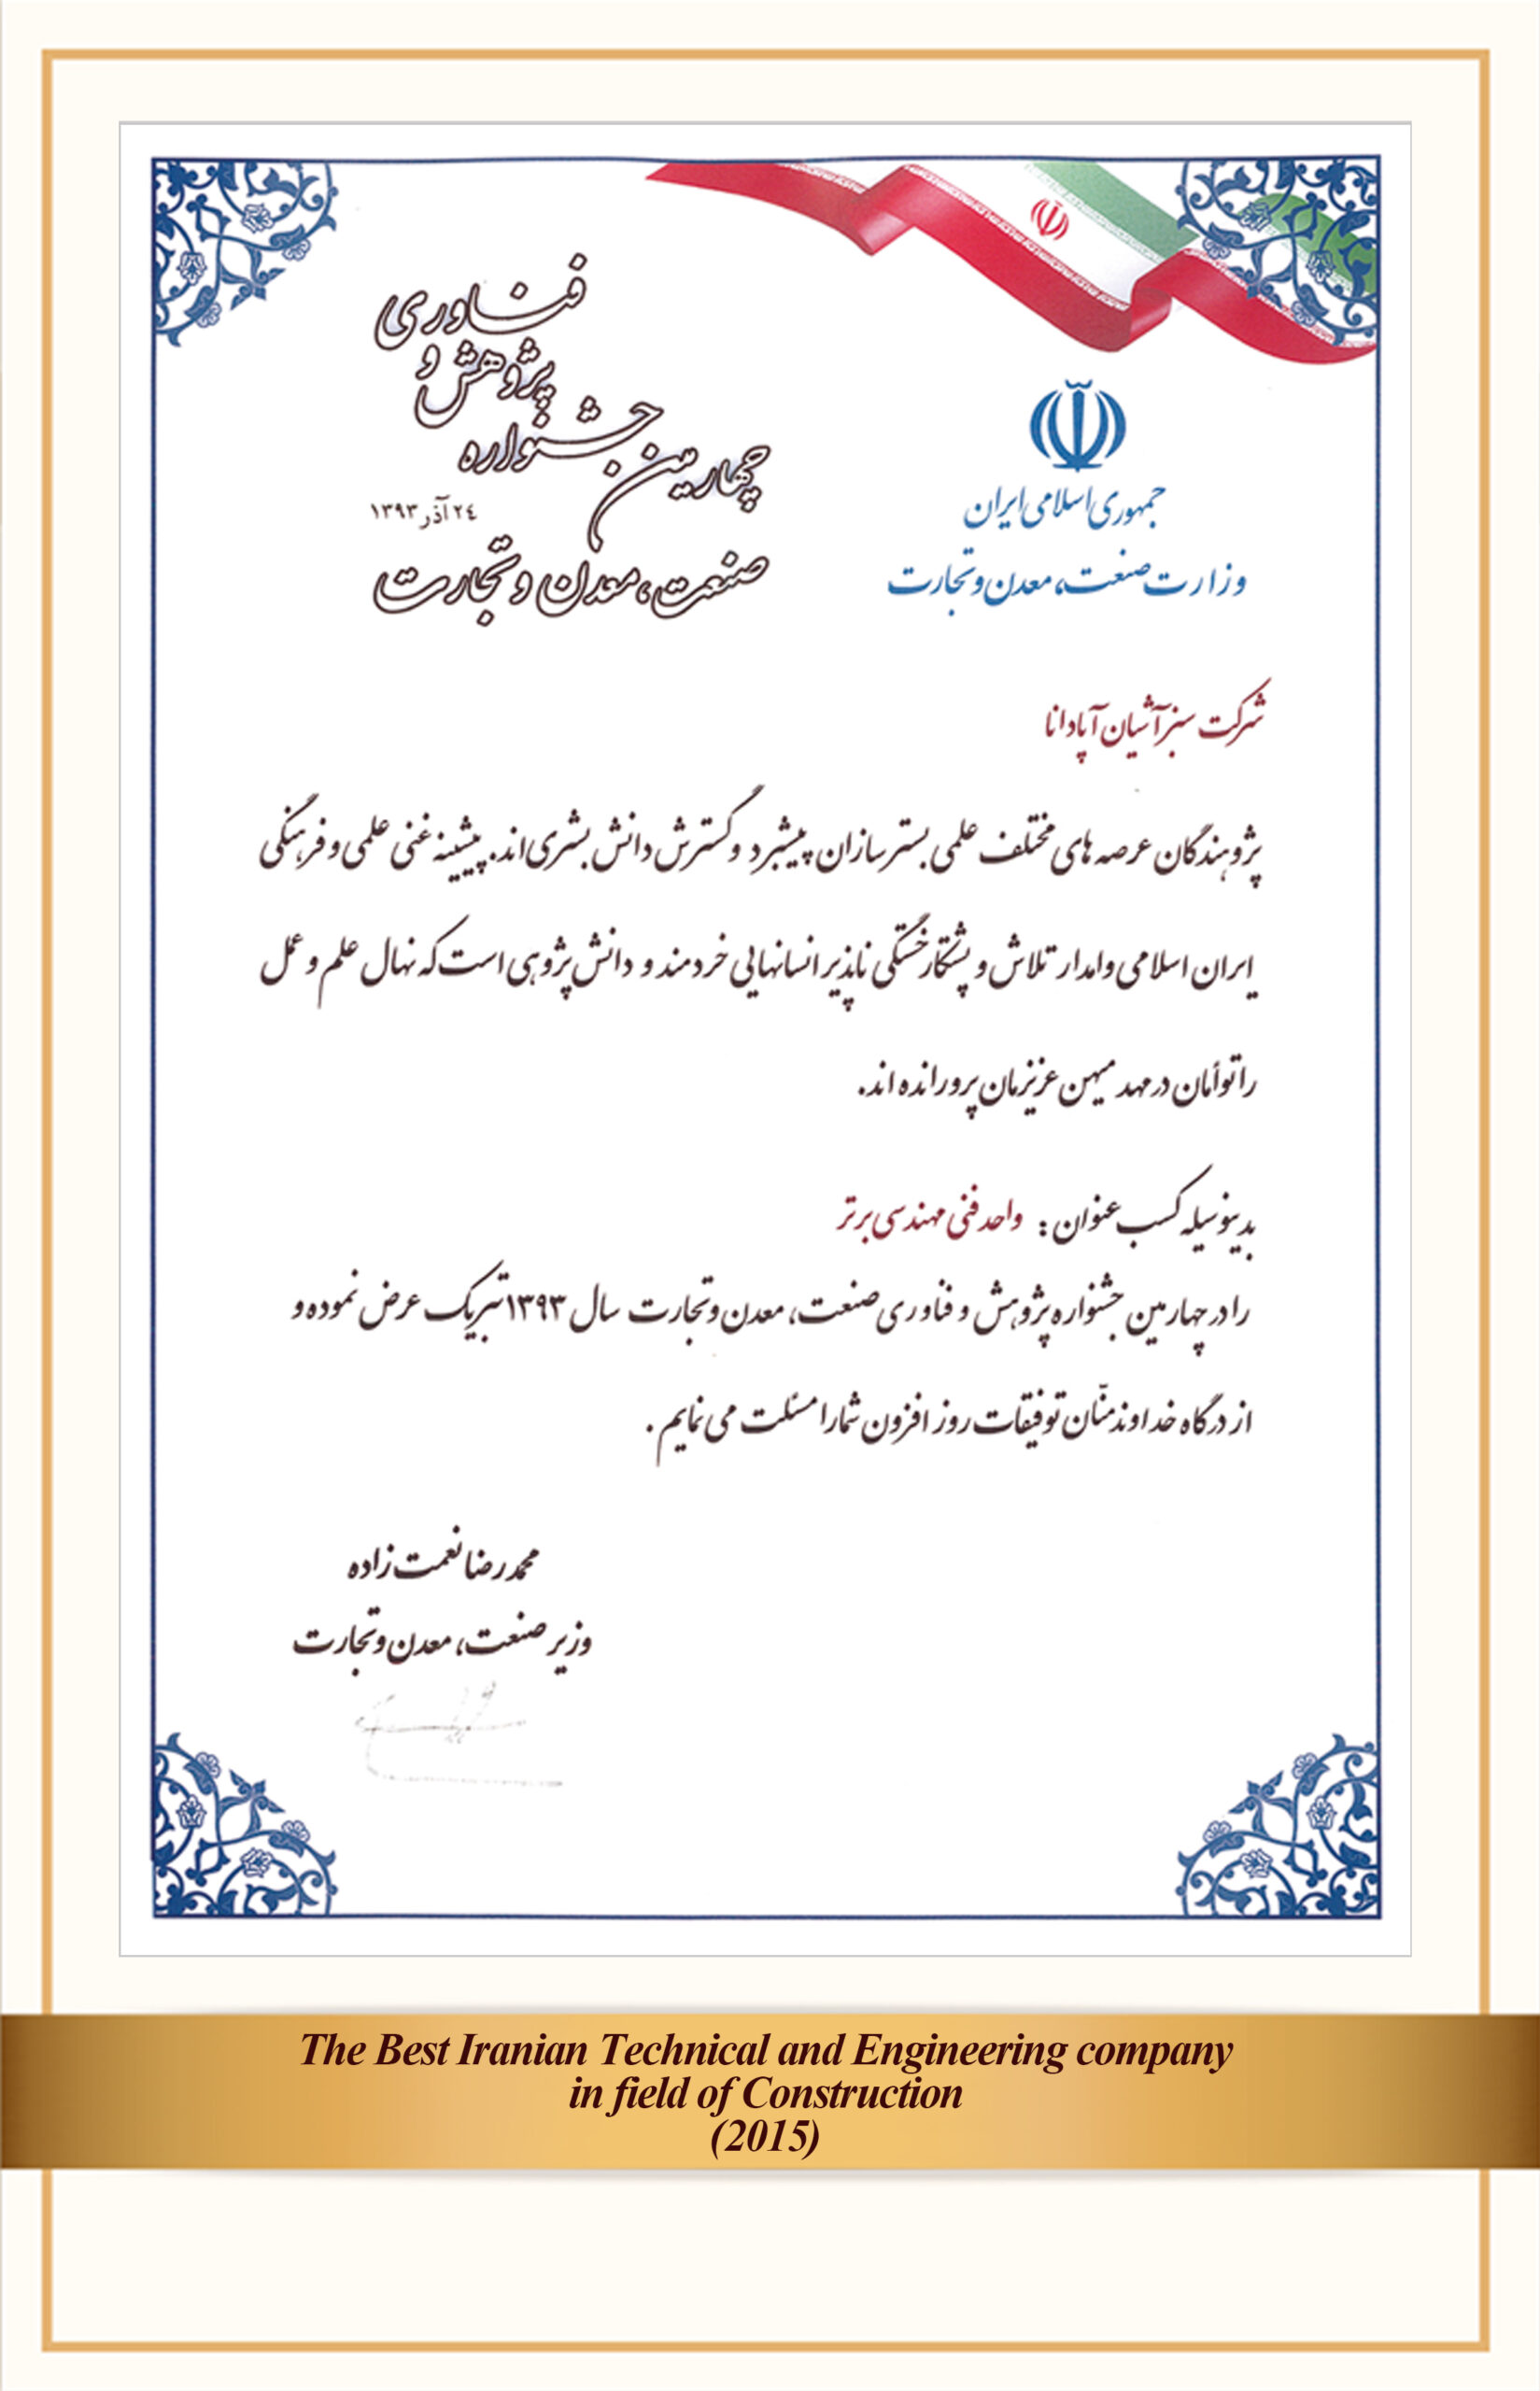 جمهوری اسلامی ایران
وزارت صنعت، معدن و تجارت
چهارمین جشنواره پژوهش و فناوری
۲٤ آذر ۱۳۹۳
صنعت، معدن و تجارت
شرکت سبز آشیان آپادانا
پژوهندگان عرصه های مختلف علمی بسترسازان پیشبرد و گسترش دانش بشری اند. پیشینه غنی علمی و فرهنگی
ایران اسلامی وامدار تلاش و پشتکار خستگی ناپذیر انسانهایی خردمند و دانش پژوهی است که نهال علم و عمل
را توأمان در مهد میهن عزیزمان پرورانده اند.
بدینوسیله کسب عنوان: واحد فنی مهندسی برتر
را در چهارمین جشنواره پژوهش و فناوری صنعت، معدن و تجارت سال ۱۳۹۳ تبریک عرض نموده و
از درگاه خداوند منّان توفیقات روز افزون شما را مسئلت می نمایم.
محمدرضا نعمت زاده
وزیر صنعت، معدن و تجارت
The Best Iranian Technical and Engineering company
in field of Construction
(2015)